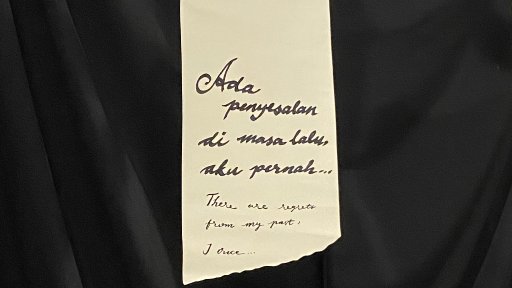 Ada
penyesalan
di masa lalu,
aku pernah...
There are regrets
from my past,
I once...